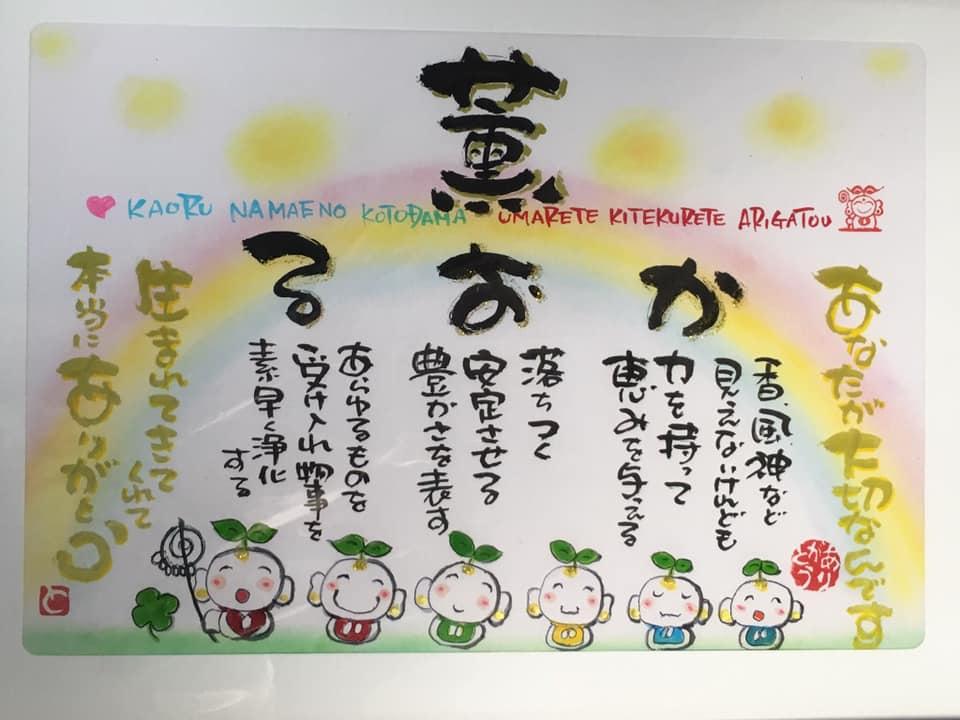 薫
KAORU NAMAENO KOTODAMA UMARETE KITEKURETE ARIGATOU
あなたが大切なんです
か
香、風、神など
見えないけれども
力を持って
恵みを与える
お
落ちつく
安定させる
豊かさを表す
る
あらゆるものを
受け入れ物事を
素早く浄化
する
生まれてきて
くれて
本当にありがとう
ありがとう
と